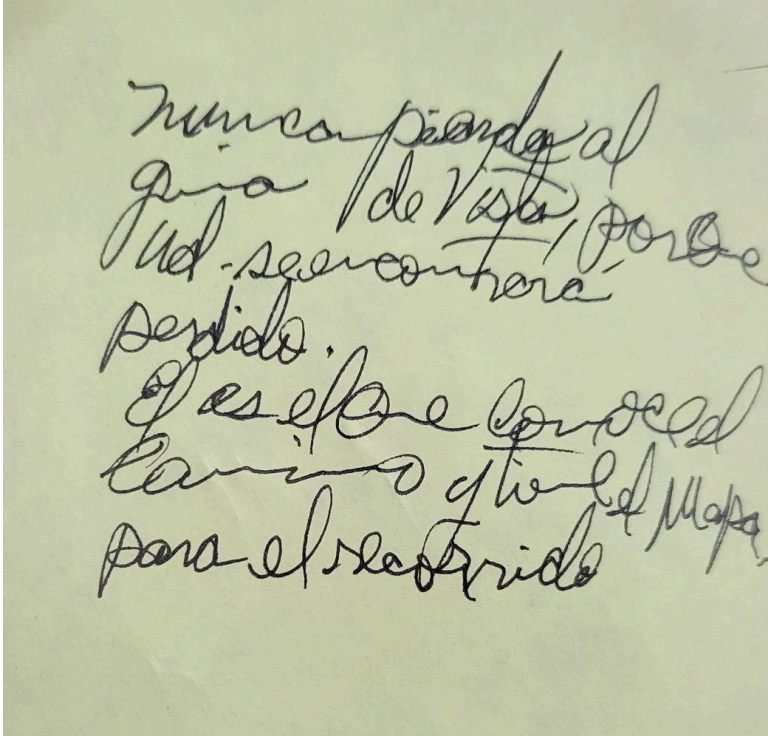 Nunca pierda al
guia de Vista, porque
Ud. se encontrará
perdido.
El es el que conoce el
Camino y tiene el Mapa,
para el recorrido